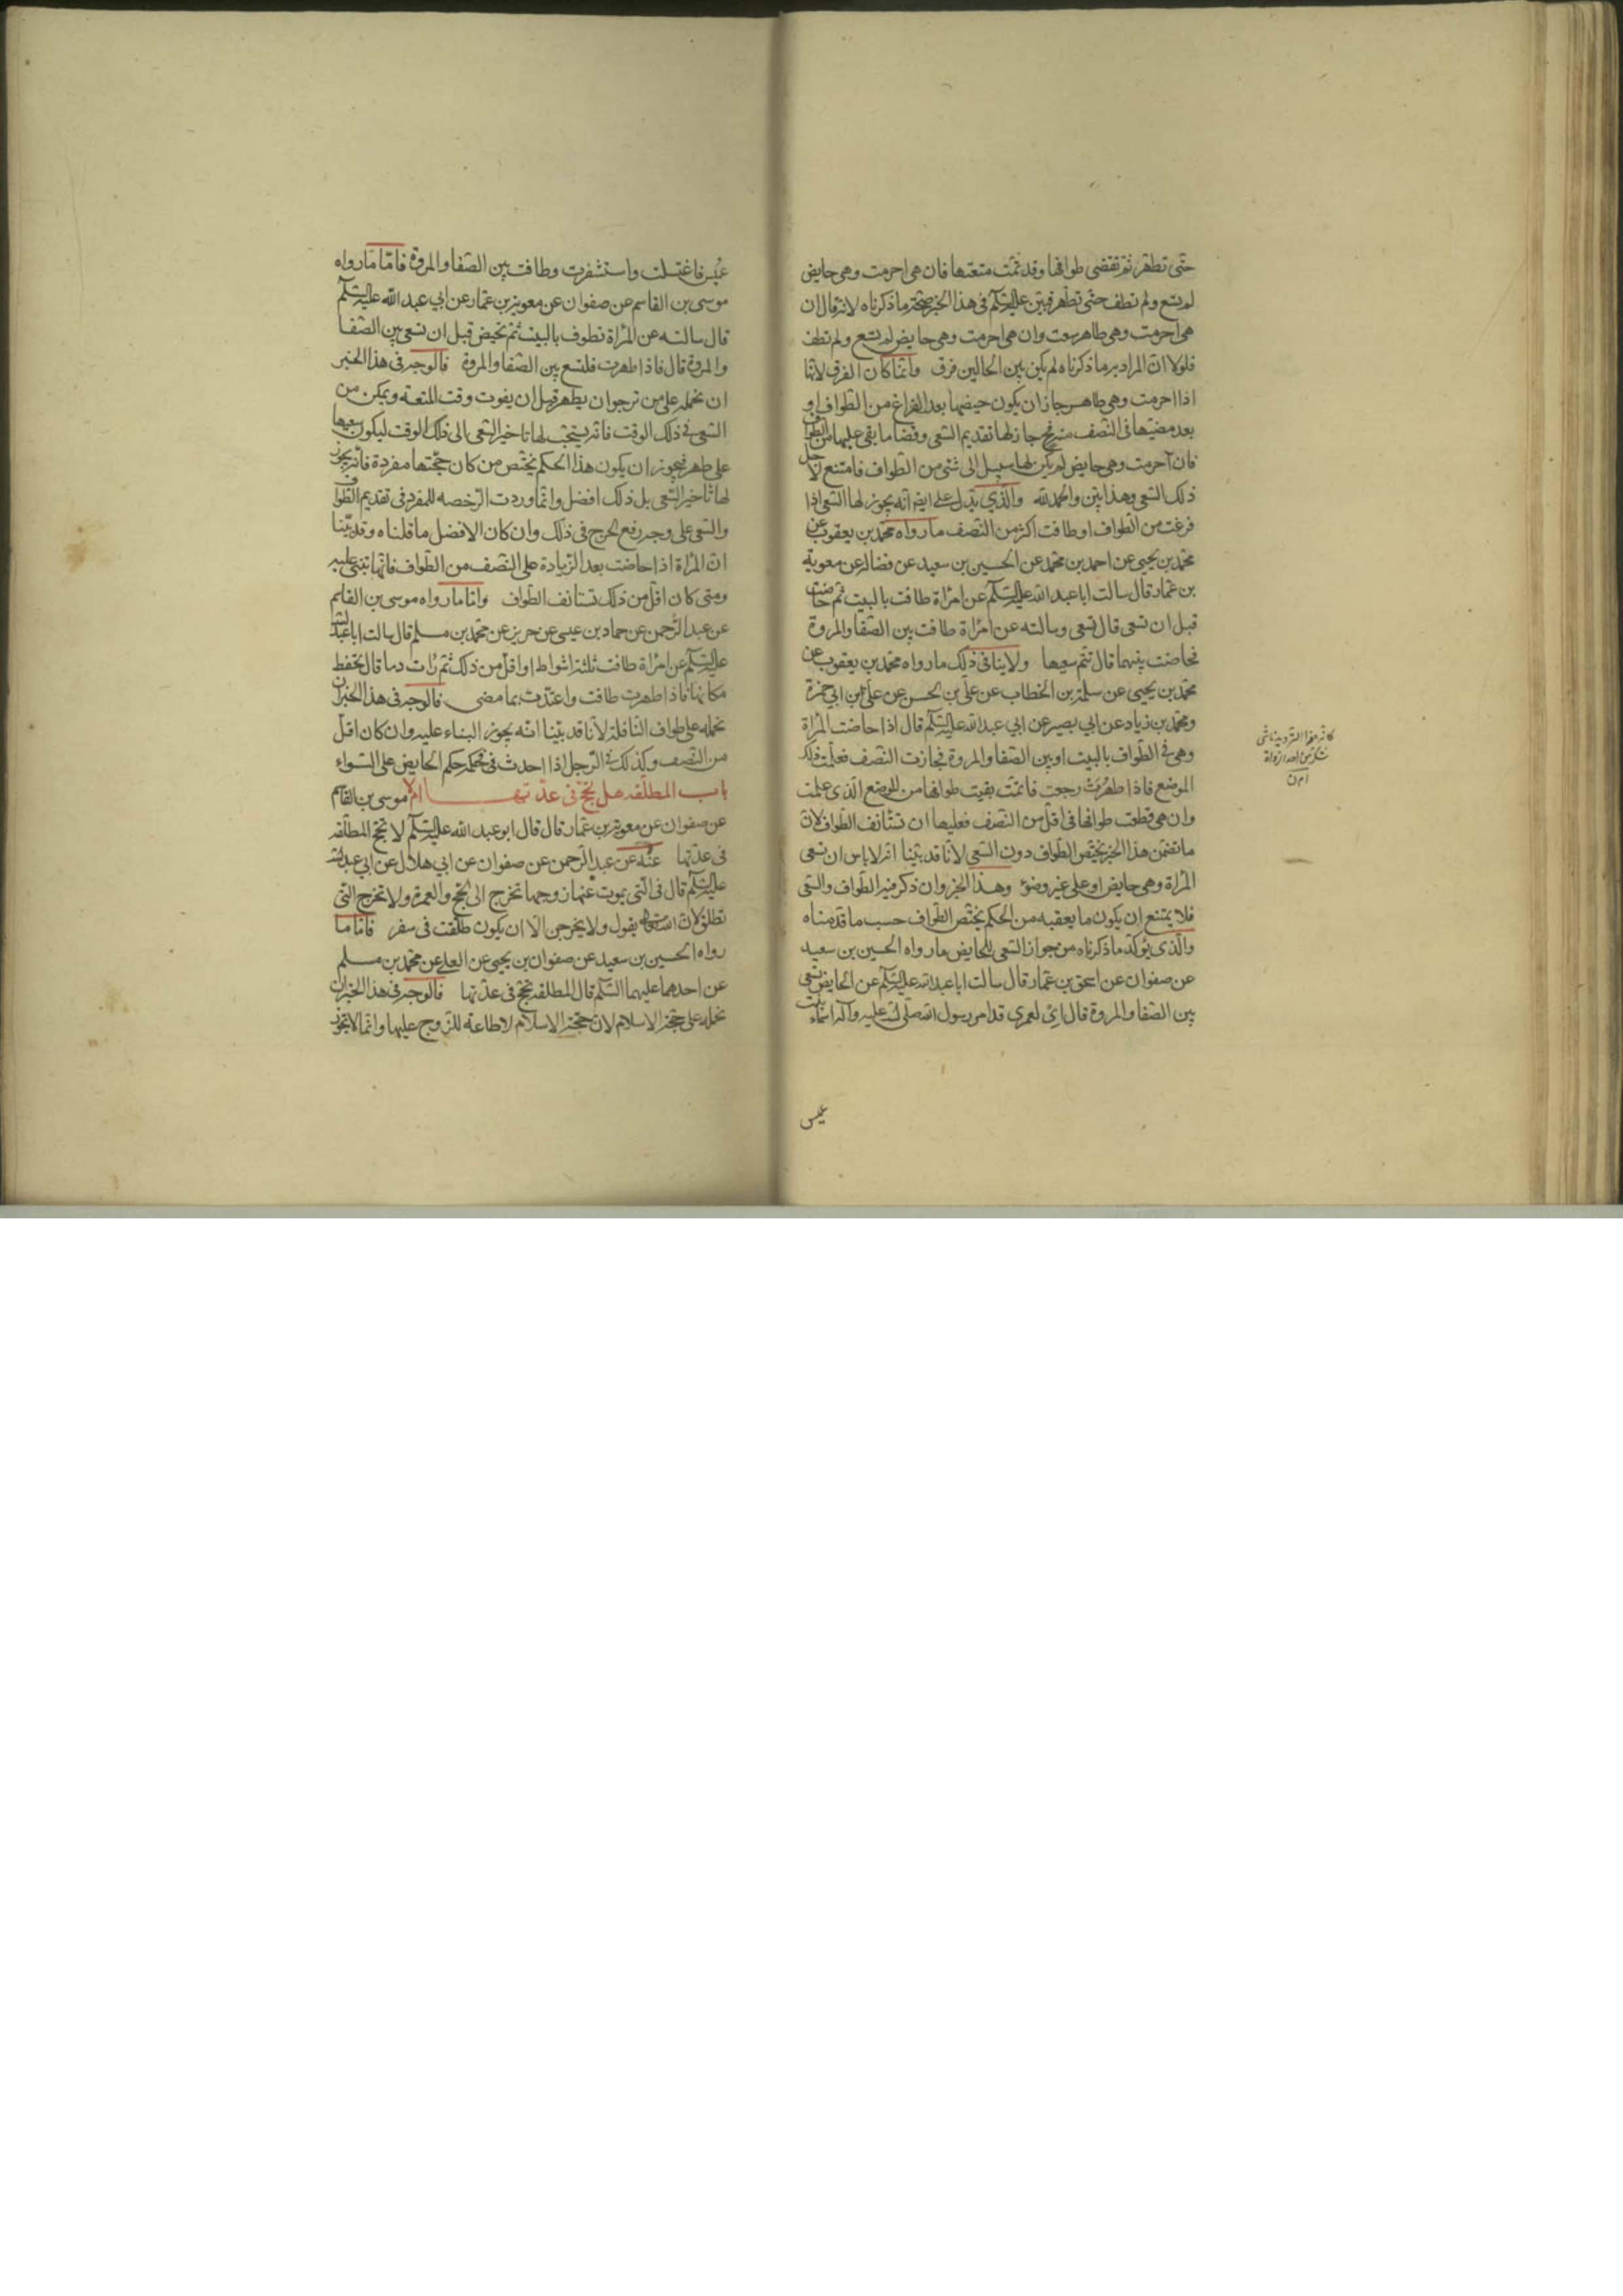 حتّى تطهر ثم تقضى طوافها وقد تمّت متعتها فان هى احرمت وهى حايض
لم تسع ولم تطف حتّى تطهر فبيّن عليه السّلم فى هذا الخبر صحّة ما ذكرناه لانه قال ان
هى احرمت وهى طاهر سعت وان هى احرمت وهى حايض لم تسع ولم تطف
فلولا انّ المراد به ما ذكرناه لم يكن بين الحالين فرق وانّما كان الفرق لانّها
اذا احرمت وهى طاهر جاز ان يكون حيضها بعد الفراغ من الطّواف او
بعد مضيّها فى النّصف منه فح جاز لها تقديم السّعى وقضا ما بقى عليها من الطّواف
فان احرمت وهى حايض لم يكن لها سبيل الى شئ من الطّواف فامتنع لاجل
ذلك السّعى وهذا بيّن والحمد لله والّذي يدلّ على ايضا انّه يجوز لها السّعى اذا
فرغت من الطّواف او طافت اكثر من النّصف ما رواه محمّد بن يعقوب عن
محمّد بن يحيى عن احمد بن محمّد عن الحسين بن سعيد عن فضاله عن معوية
بن عمّار قال سالت ابا عبد الله عليه السّلم عن امراة طافت بالبيت ثم حاضت
قبل ان تسعى قال تسعى وسالته عن امراة طافت بين الصّفا والمروة
فحاضت بينهما قال تتمّ سعيها ولا ينافى ذلك ما رواه محمّد بن يعقوب عن
محمّد بن يحيى عن سلمة بن الخطاب عن علىّ بن الحسن عن علىّ بن ابي حمزة
ومحمّد بن زياد عن ابي بصير عن ابي عبد الله عليه السّلم قال اذا حاضت المراة
وهى فى الطّواف بالبيت او بين الصّفا والمروة فجازت النّصف فعلمت ذلك
الموضع فاذا طهرت رجعت فاتمّت بقيت طوافها من الموضع الّذى علمت
وان هى قطعت طوافها فى اقلّ من النّصف فعليها ان تستانف الطواف لانّ
ما تضمّن هذا الخبر يختصّ الطّواف دون السّعى لانّا قد بيّنا انه لا باس ان تسعى
المراة وهى حايض او على غير وضوء وهذا الخبر وان ذكر فيه الطّواف والسّعى
فلا يمتنع ان يكون ما يعقبه من الحكم يختصّ الطّواف حسب ما قدّمناه
والّذى يؤكّد ما ذكرناه من جواز السّعى للحايض ما رواه الحسين بن سعيد
عن صفوان عن اسحق بن عمّار قال سالت ابا عبد الله عليه السّلم عن الحايض تسعى
بين الصّفا والمروة قال اى لعمرى قد امر رسول الله صلّى الله عليه وآله اسماء بنت
عميس
عميس فاغتسلت واستثفرت وطافت بين الصّفا والمروة فامّا ما رواه
موسى بن القاسم عن صفوان عن معوية بن عمّار عن ابي عبد الله عليه السّلم
قال سالته عن المراة تطوف بالبيت ثم تحيض قبل ان تسعى بين الصّفا
والمروة قال فاذا طهرت فلتسع بين الصّفا والمروة فالوجه فى هذا الخبر
ان نحمله على من ترجو ان يطهر قبل ان يفوت وقت المتعة ويمكن من
السّعى فى ذلك الوقت فانه يستحبّ لها تاخير السّعى الى ذلك الوقت ليكون سعيها
على طهر فيجوز ان يكون هذا الحكم يختصّ من كان حجّتها مفردة فانّه يجوز
لها تاخير السّعى بل ذلك افضل وانّما وردت الرّخصه للمفرد فى تقديم الطّواف
والسّعى على وجه رفع الحرج فى ذلك وان كان الافضل ما قلناه وقد بيّنا
انّ المراة اذا حاضت بعد الزّيادة على النّصف من الطّواف فانّها تبنى عليه
ومتى كان اقلّ من ذلك تستانف الطّواف وامّا ما رواه موسى بن القاسم
عن عبد الرّحمن عن حماد بن عيسى عن حريز عن محمّد بن مسلم قال سالت ابا عبد الله
عليه السّلم عن امراة طافت ثلثة اشواط او اقلّ من ذلك ثم رات دما قال تحفظ
مكانها فاذا طهرت طافت واعتدّت بما مضى فالوجه فى هذا الخبر ان
نحمله على طواف النّافلة لانّا قد بيّنا انّه يجوز البناء عليه وان كان اقلّ
من النّصف وكذلك الرّجل اذا احدث فى حكمه حكم الحايض على السّواء
باب المطلّقه هل تحجّ فى عدّتها ام لا موسى بن القاسم
عن صفوان عن معوية بن عمّار قال قال ابو عبد الله عليه السّلم لا تحجّ المطلّقه
فى عدّتها عنه عن عبد الرّحمن عن صفوان عن ابي هلال عن ابي عبد الله
عليه السّلم قال فى الّتى يموت عنها زوجها تخرج الى الحجّ والعمرة ولا تخرج الّتى
تطلّق لانّ الله تعالى يقول ولا يخرجن الّا ان يكون طلّقت فى سفر فامّا ما
رواه الحسين بن سعيد عن صفوان بن يحيى عن العلا عن محمّد بن مسلم
عن احدهما عليهما السّلم قال المطلّقه تحجّ فى عدّتها فالوجه فى هذا الخبر ان
نحمله على حجّة الاسلام لانّ حجّة الاسلام لا طاعة للزّوج عليها وانّما لا يجوز